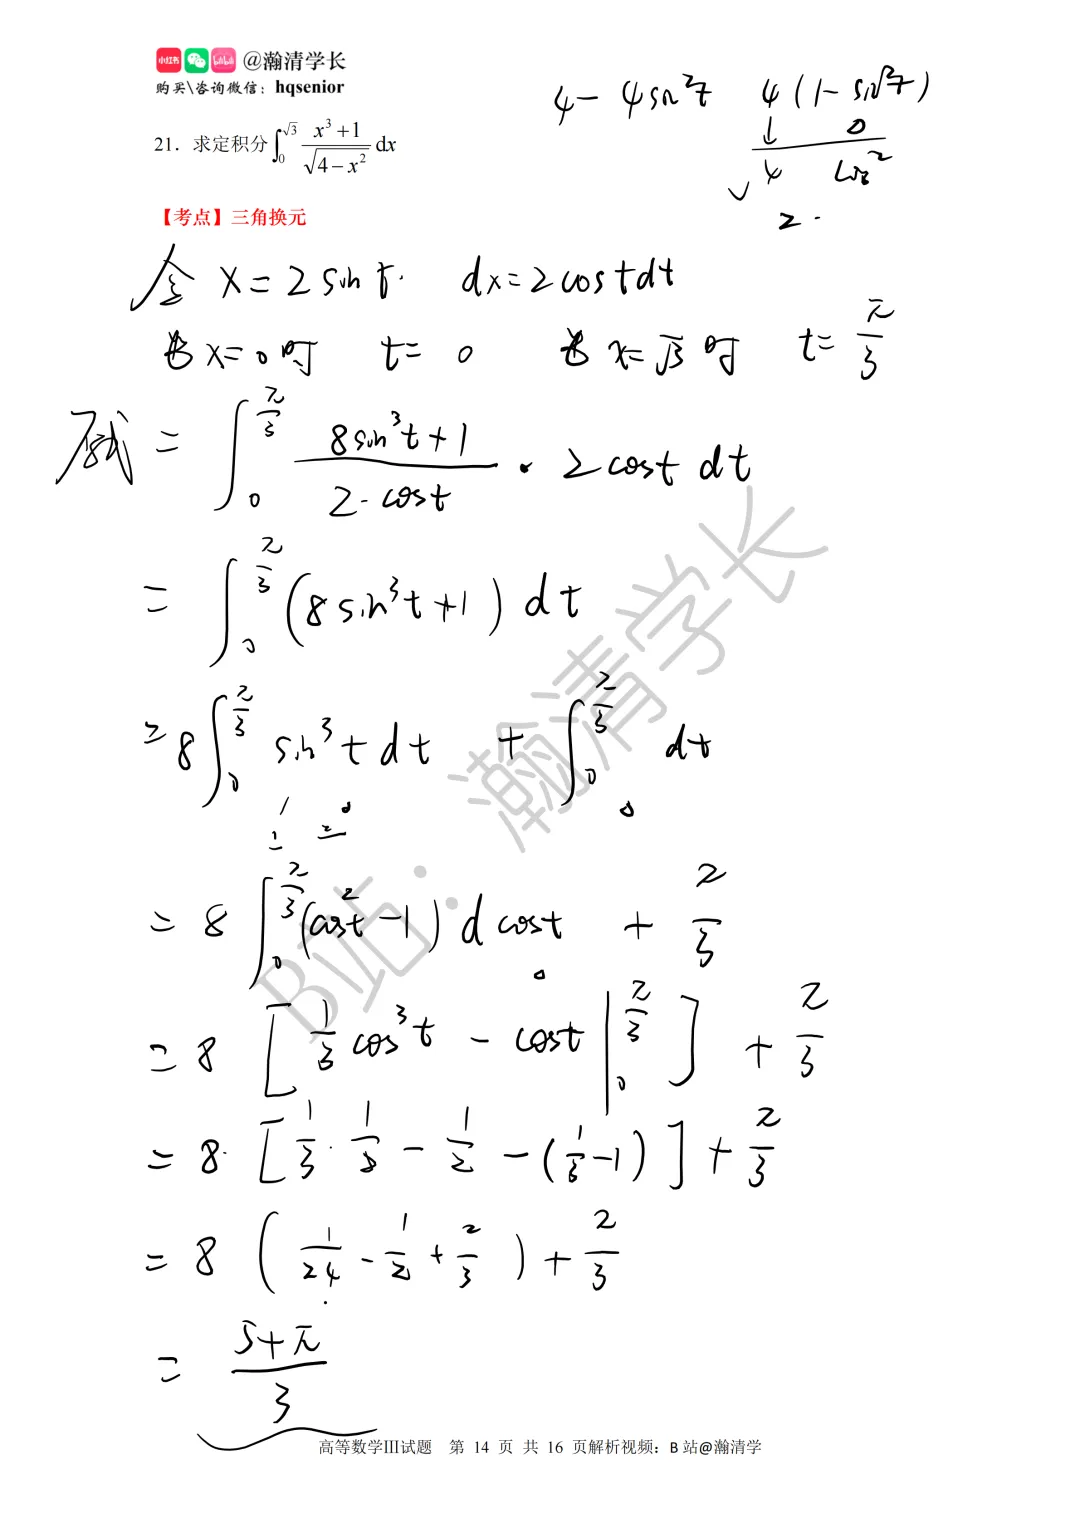 小红书 bilibili @瀚清学长
购买\咨询微信：hqsenior
4 - 4sin²t 4(1 - sin²t)
↓ 0
√4 cos²
2·
21．求定积分∫₀^√3 (x³+1)/√(4−x²) dx
【考点】三角换元
令 x = 2 sin t. dx = 2cost dt
当 x=0时 t= 0 当 x=√3 时 t= π/3
原式 = ∫₀^(π/3) (8sin³t+1)/(2·cost) · 2cost dt
= ∫₀^(π/3) (8sin³t+1) dt
= 8∫₀^(π/3) sin³t dt + ∫₀^(π/3) dt
1 2
= 8∫₀^(π/3) (cos²t −1) d cost + π/3
= 8 [ 1/3 cos³t − cost |₀^(π/3) ] + π/3
= 8· [ 1/3 · 1/8 − 1/2 − (1/3 −1) ] + π/3
= 8 ( 1/24 − 1/2 + 2/3 ) + π/3
= (5+π)/3
B站：瀚清学长
高等数学Ⅲ试题 第 14 页 共 16 页解析视频：B 站@瀚清学